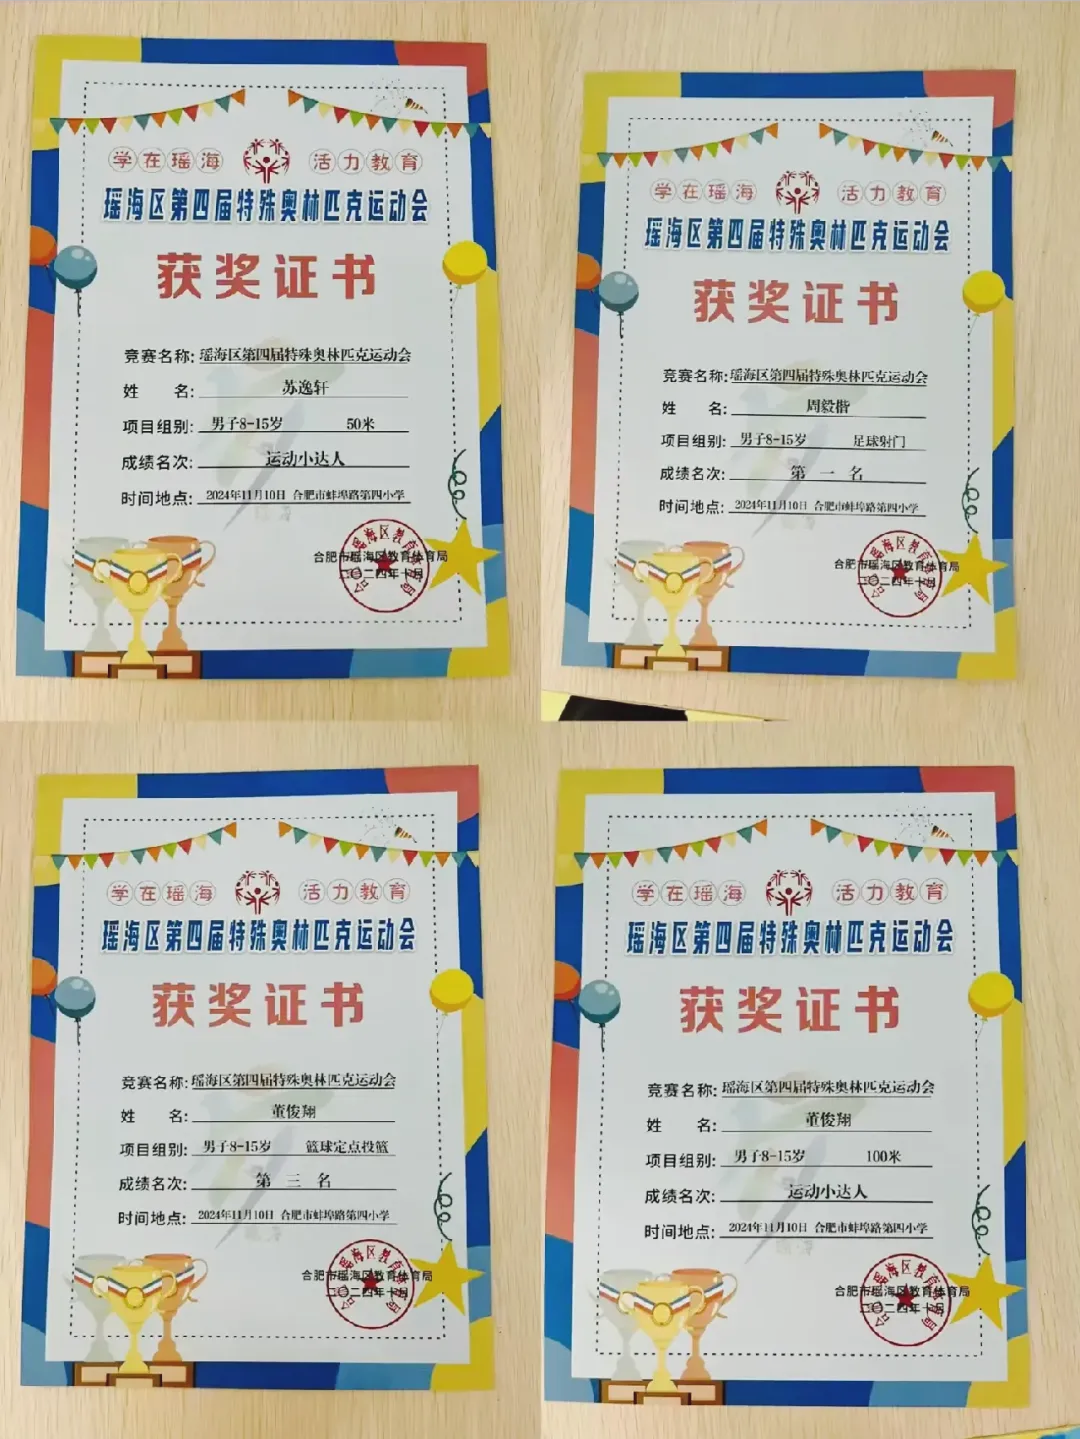 学在瑶海 活力教育
瑶海区第四届特殊奥林匹克运动会
获奖证书
竞赛名称:瑶海区第四届特殊奥林匹克运动会
姓 名:苏逸轩
项目组别:男子8-15岁 50米
成绩名次:运动小达人
时间地点:2024年11月10日 合肥市蚌埠路第四小学
合肥市瑶海区教育体育局
二〇二四年十月
学在瑶海 活力教育
瑶海区第四届特殊奥林匹克运动会
获奖证书
竞赛名称:瑶海区第四届特殊奥林匹克运动会
姓 名:周毅楷
项目组别:男子8-15岁 足球射门
成绩名次:第一名
时间地点:2024年11月10日 合肥市蚌埠路第四小学
合肥市瑶海区教育体育局
二〇二四年十月
学在瑶海 活力教育
瑶海区第四届特殊奥林匹克运动会
获奖证书
竞赛名称:瑶海区第四届特殊奥林匹克运动会
姓 名:董俊翔
项目组别:男子8-15岁 篮球定点投篮
成绩名次:第三名
时间地点:2024年11月10日 合肥市蚌埠路第四小学
合肥市瑶海区教育体育局
二〇二四年十月
学在瑶海 活力教育
瑶海区第四届特殊奥林匹克运动会
获奖证书
竞赛名称:瑶海区第四届特殊奥林匹克运动会
姓 名:董俊翔
项目组别:男子8-15岁 100米
成绩名次:运动小达人
时间地点:2024年11月10日 合肥市蚌埠路第四小学
合肥市瑶海区教育体育局
二〇二四年十月